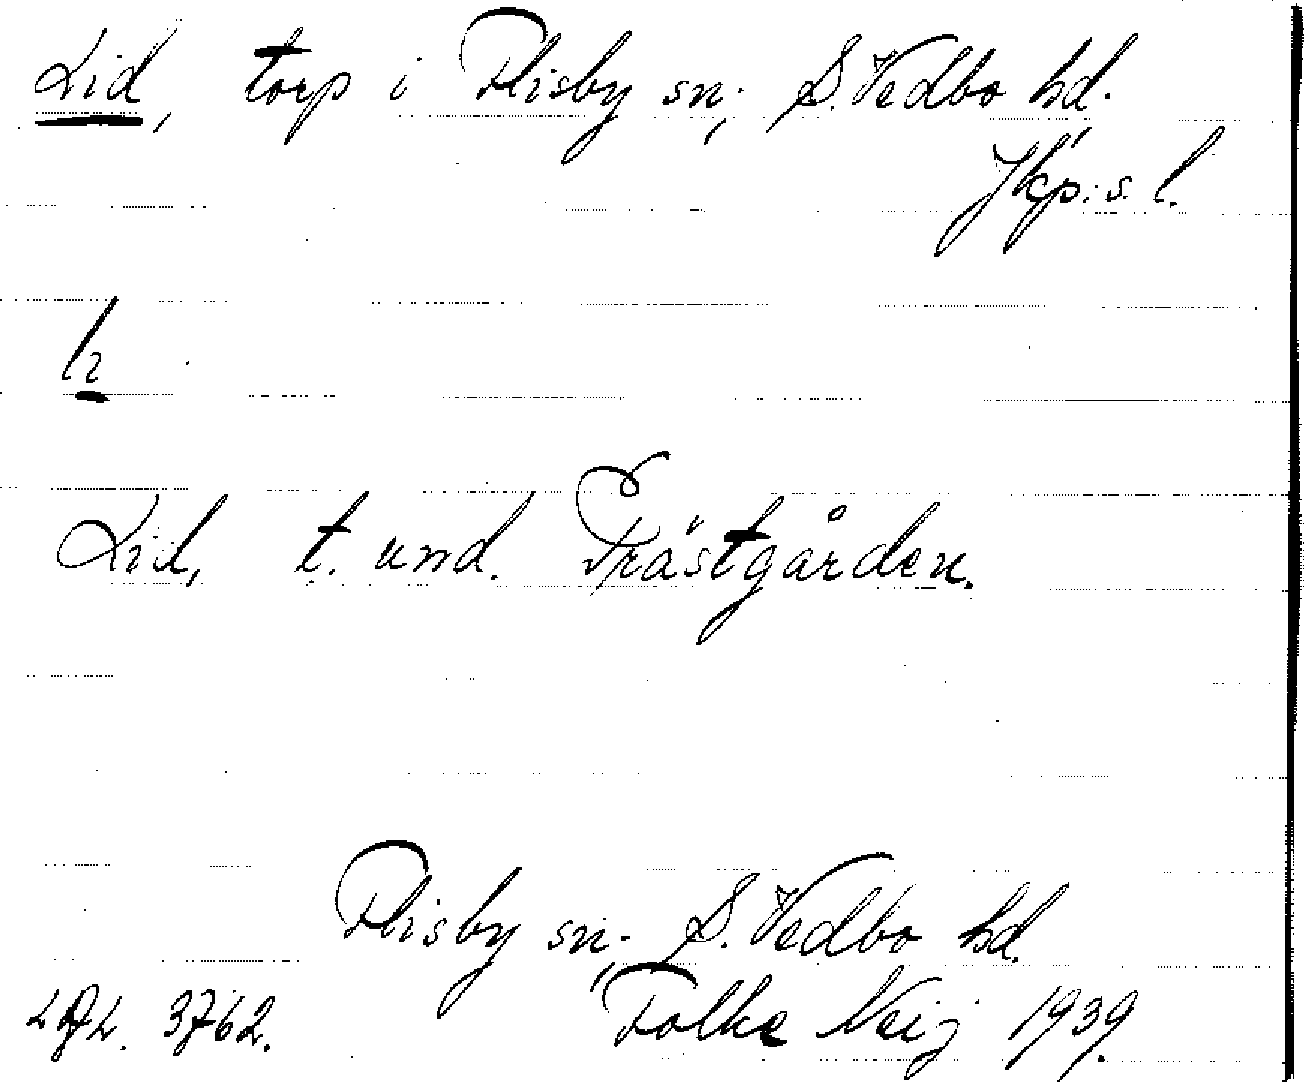 Lid, torp i Flisby sn, S. Vedbo hd.
Jkp:s l.
Lid, t. und. Prästgården.
Flisby sn, S. Vedbo hd.
3762. Folke Neij 1939.